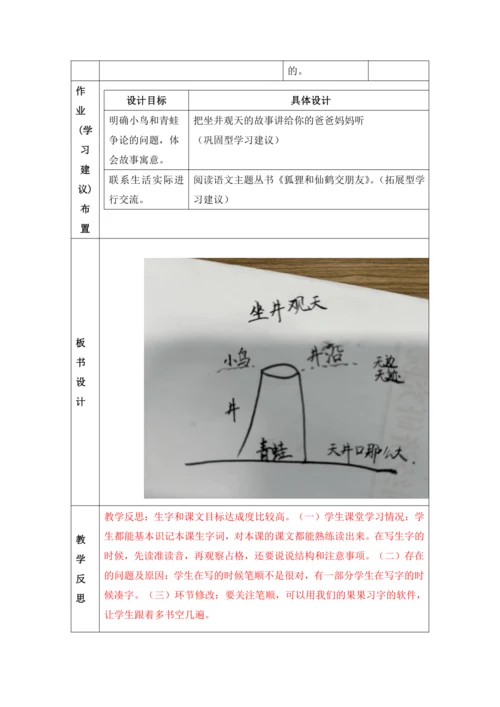 的。
作
业
(学
习
建
议)
布
置
设计目标 具体设计
明确小鸟和青蛙
争论的问题，体
会故事寓意。
把坐井观天的故事讲给你的爸爸妈妈听
（巩固型学习建议）
联系生活实际进
行交流。
阅读语文主题丛书《狐狸和仙鹤交朋友》。（拓展型学
习建议）
板
书
设
计
坐井观天
小鸟 井沿 天边
天际
井
青蛙 天井口那么大
教
学
反
思
教学反思：生字和课文目标达成度比较高。（一）学生课堂学习情况：学
生都能基本识记本课生字词，对本课的课文都能熟练读出来。在写生字的
时候，先读准读音，再观察占格，还要说说结构和注意事项。（二）存在
的问题及原因：学生在写的时候笔顺不是很对，有一部分学生在写字的时
候凑字。（三）环节修改：要关注笔顺，可以用我们的果果习字的软件，
让学生跟着多书空几遍。